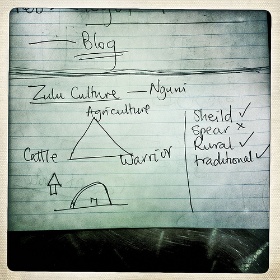 Blog
Zulu Culture — Nguni
Agriculture
Cattle
Warrior
Sheild ✓
Spear ×
Rural ✓
traditional ✓